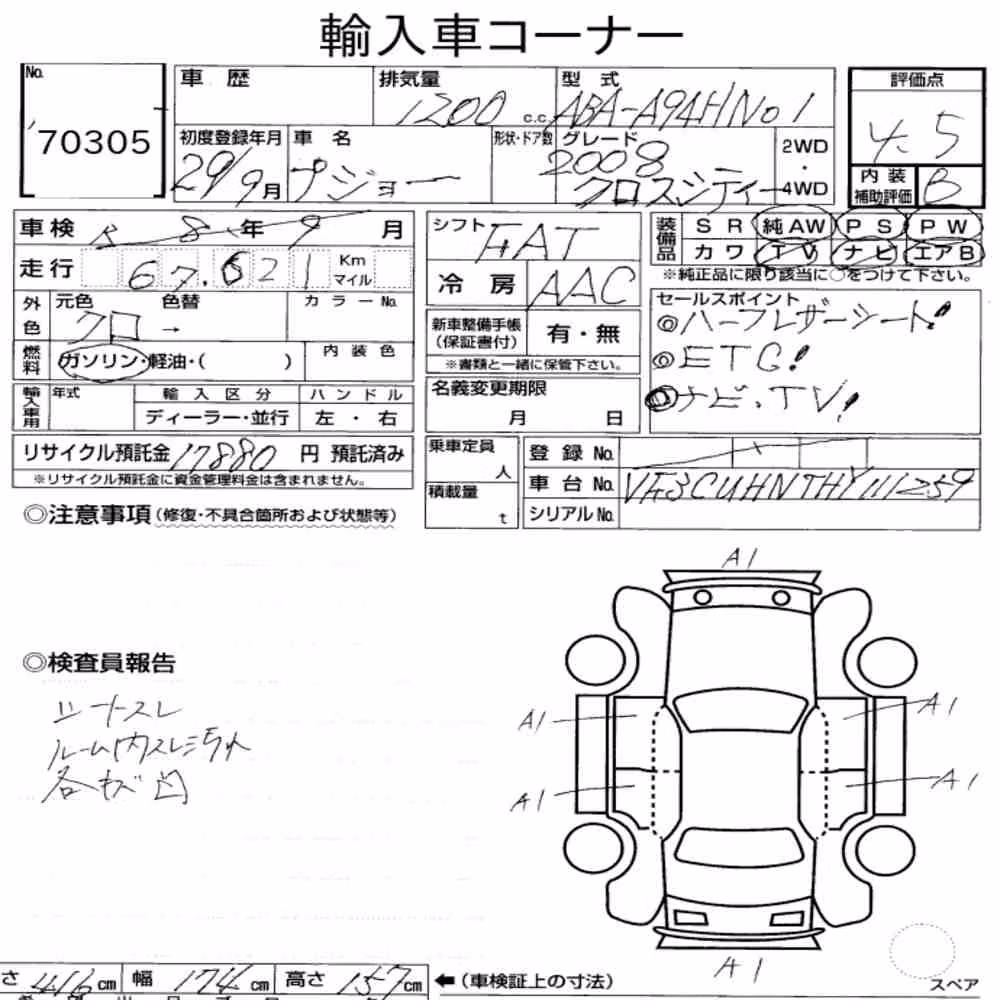 輸入車コーナー
No.
70305
車歴
排気量
1200 c.c.
型式
ABA-A94HN01
評価点
4.5
初度登録年月
29/9月
車名
プジョー
形状・ドア数
グレード
2008
クロスシティー
2WD
・
4WD
内装
補助評価
B
車検 R 8年 9月
走行 67,621 Km
マイル
シフト
FAT
冷房
AAC
装備品
SR 純AW PS PW
カワ TV ナビ エアB
※純正品に限り該当に○をつけて下さい。
外色
元色
色替
カラーNo.
クロ →
燃料
ガソリン・軽油・( )
内装色
新車整備手帳
(保証書付)
有・無
※書類と一緒に保管下さい。
セールスポイント
◎ハーフレザーシート!
◎ETC!
◎ナビ・TV!
輸入車用
年式
輸入区分
ハンドル
ディーラー・並行
左・右
名義変更期限
月 日
リサイクル預託金 17880 円 預託済み
※リサイクル預託金に資金管理料金は含まれません。
乗車定員
人
積載量
t
登録No.
車台No. VF3CUHNTHHY111259
シリアルNo.
◎注意事項(修復・不具合箇所および状態等)
A1
◎検査員報告
シートスレ
ルーム内スレ汚れ
各キズ凹
A1
A1
A1
A1
A1
スペア
さ 416 cm 幅 174 cm 高さ 157 cm
←(車検証上の寸法)